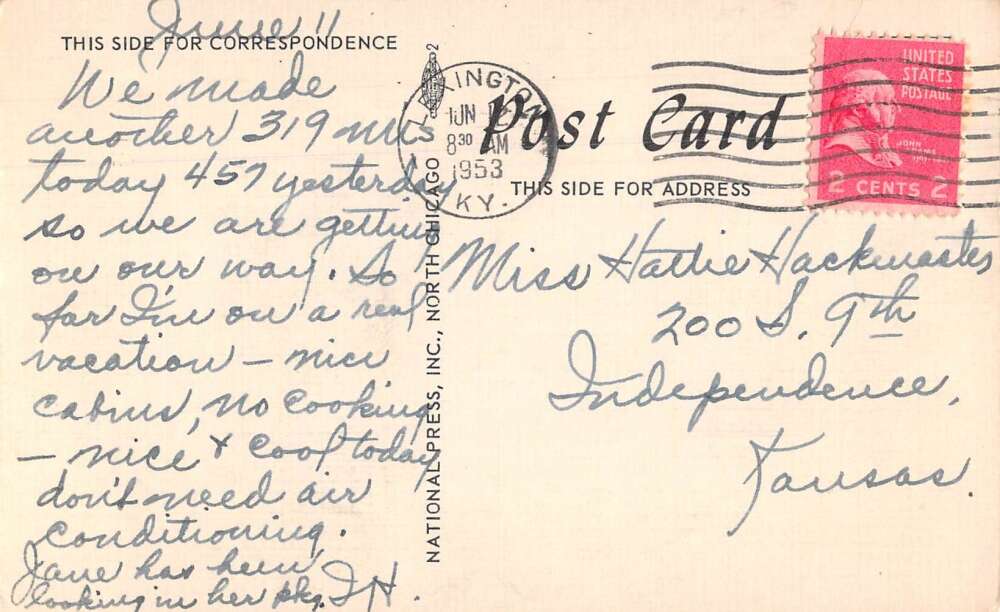 June 11
THIS SIDE FOR CORRESPONDENCE
We made
another 319 mls
today 457 yesterday
so we are getting
on our way. So
far I'm on a real
vacation – nice
cabins, no cooking
– nice & cool today
don't need air
conditioning.
Jane has been
looking in her pkg. I H.
NATIONAL PRESS, INC., NORTH CHICAGO
2
LEXINGTON
JUN 12
8 30 AM
1953
KY.
Post Card
THIS SIDE FOR ADDRESS
UNITED
STATES
POSTAGE
JOHN
ADAMS
2 CENTS 2
Miss Hattie Hackmaster
200 S. 9th
Independence,
Kansas.